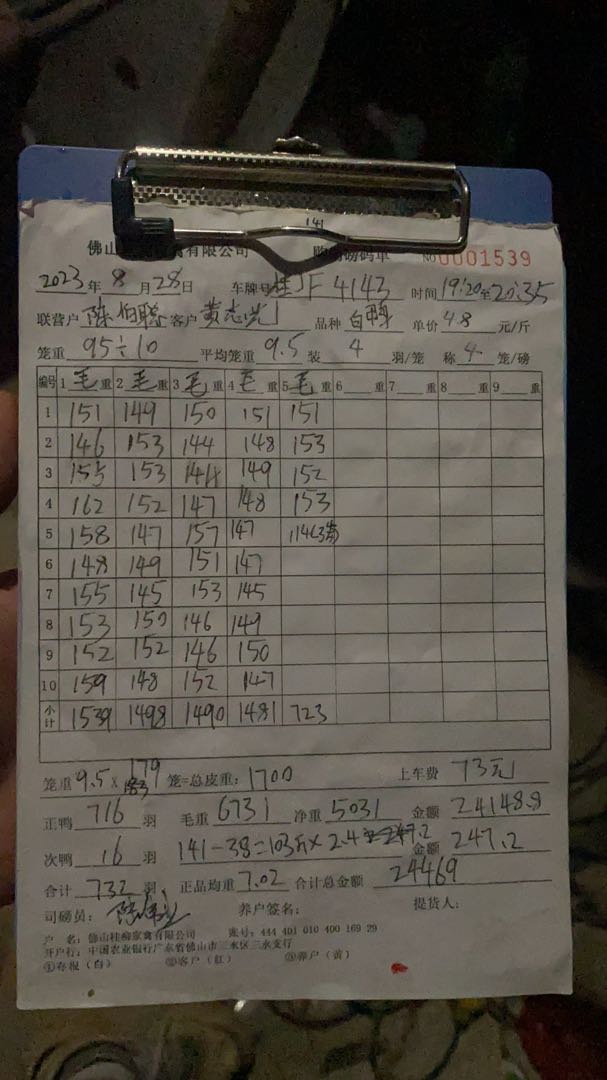 141
佛山 禽有限公司 购 磅码单 No 0001539
2023 年 8 月 28 日 车牌号 桂JF 4143 时间 19:20至20:35
联营户 陈伯聪 客户 黄志光 品种 白鸭 单价 4.8 元/斤
笼重 95÷10 平均笼重 9.5 装 4 羽/笼 称 4 笼/磅
编号 1 毛 重 2 毛 重 3 毛 重 4 毛 重 5 毛 重 6 重 7 重 8 重 9 重
1 151 149 150 151 151
2 146 153 144 148 153
3 155 153 144 149 152
4 162 152 147 148 153
5 158 147 157 147 114 63
6 148 149 151 147
7 155 145 153 145
8 153 150 146 149
9 152 152 146 150
10 159 148 152 147
小计 1539 1498 1490 1481 723
笼重 9.5 × 179 183 笼=总皮重: 1700 上车费 73元
正鸭 716 羽 毛重 6731 净重 5031 金额 24148.8
次鸭 16 羽 141-38=103斤×2.4 247.2 金额 247.2
合计 732 羽 正品均重 7.02 合计总金额 24469
司磅员: 养户签名: 提货人:
户 名: 佛山桂柳家禽有限公司 账号: 444 401 010 400 169 29
开户行: 中国农业银行广东省佛山市三水区三水支行
①存根(白) ②客户(红) ③养户(黄)